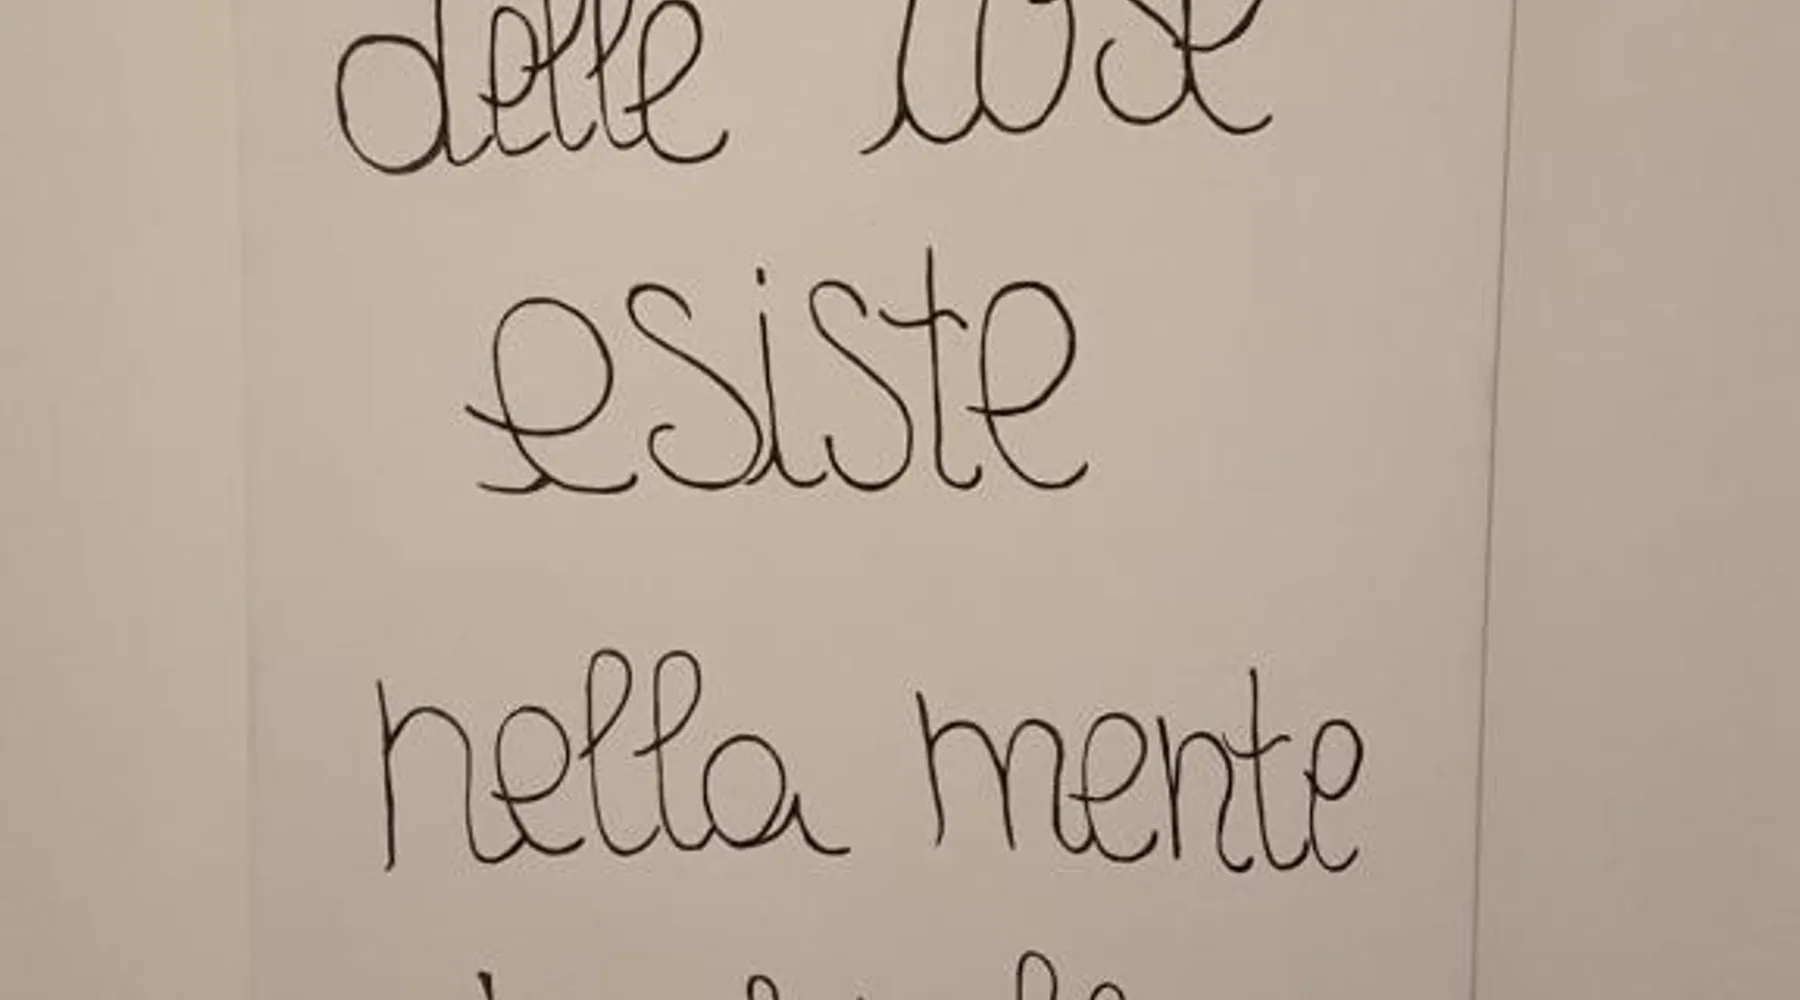 delle cose
esiste
nella mente